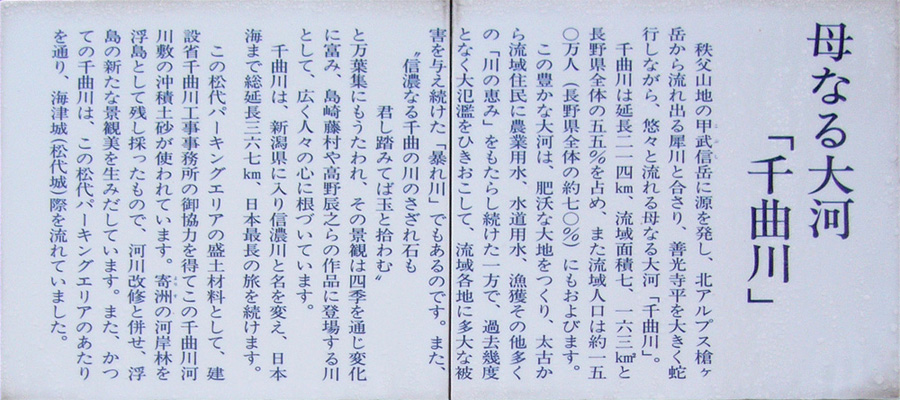 母なる大河
「千曲川」
秩父山地の甲武信岳に源を発し、北アルプス槍ヶ
岳から流れ出る犀川と合さり、善光寺平を大きく蛇
行しながら、悠々と流れる母なる大河「千曲川」。
千曲川は延長二一四km、流域面積七、一六三km²と
長野県全体の五五%を占め、また流域人口は約一五
〇万人（長野県全体の約七〇%）にもおよびます。
この豊かな大河は、肥沃な大地をつくり、太古か
ら流域住民に農業用水、水道用水、漁獲その他多く
の「川の恵み」をもたらし続けた一方で、過去幾度
となく大氾濫をひきおこして、流域各地に多大な被
害を与え続けた「暴れ川」でもあるのです。また、
〝信濃なる千曲の川のさざれ石も
君し踏みてば玉と拾わむ〟
と万葉集にもうたわれ、その景観は四季を通じ変化
に富み、島崎藤村や高野辰之らの作品に登場する川
として、広く人々の心に根づいています。
千曲川は、新潟県に入り信濃川と名を変え、日本
海まで総延長三六七km、日本最長の旅を続けます。
この松代パーキングエリアの盛土材料として、建
設省千曲川工事事務所の御協力を得てこの千曲川河
川敷の沖積土砂が使われています。寄洲の河岸林を
浮島として残し採ったもので、河川改修と併せ、浮
島の新たな景観美を生みだしています。また、かつ
ての千曲川は、この松代パーキングエリアのあたり
を通り、海津城（松代城）際を流れていました。